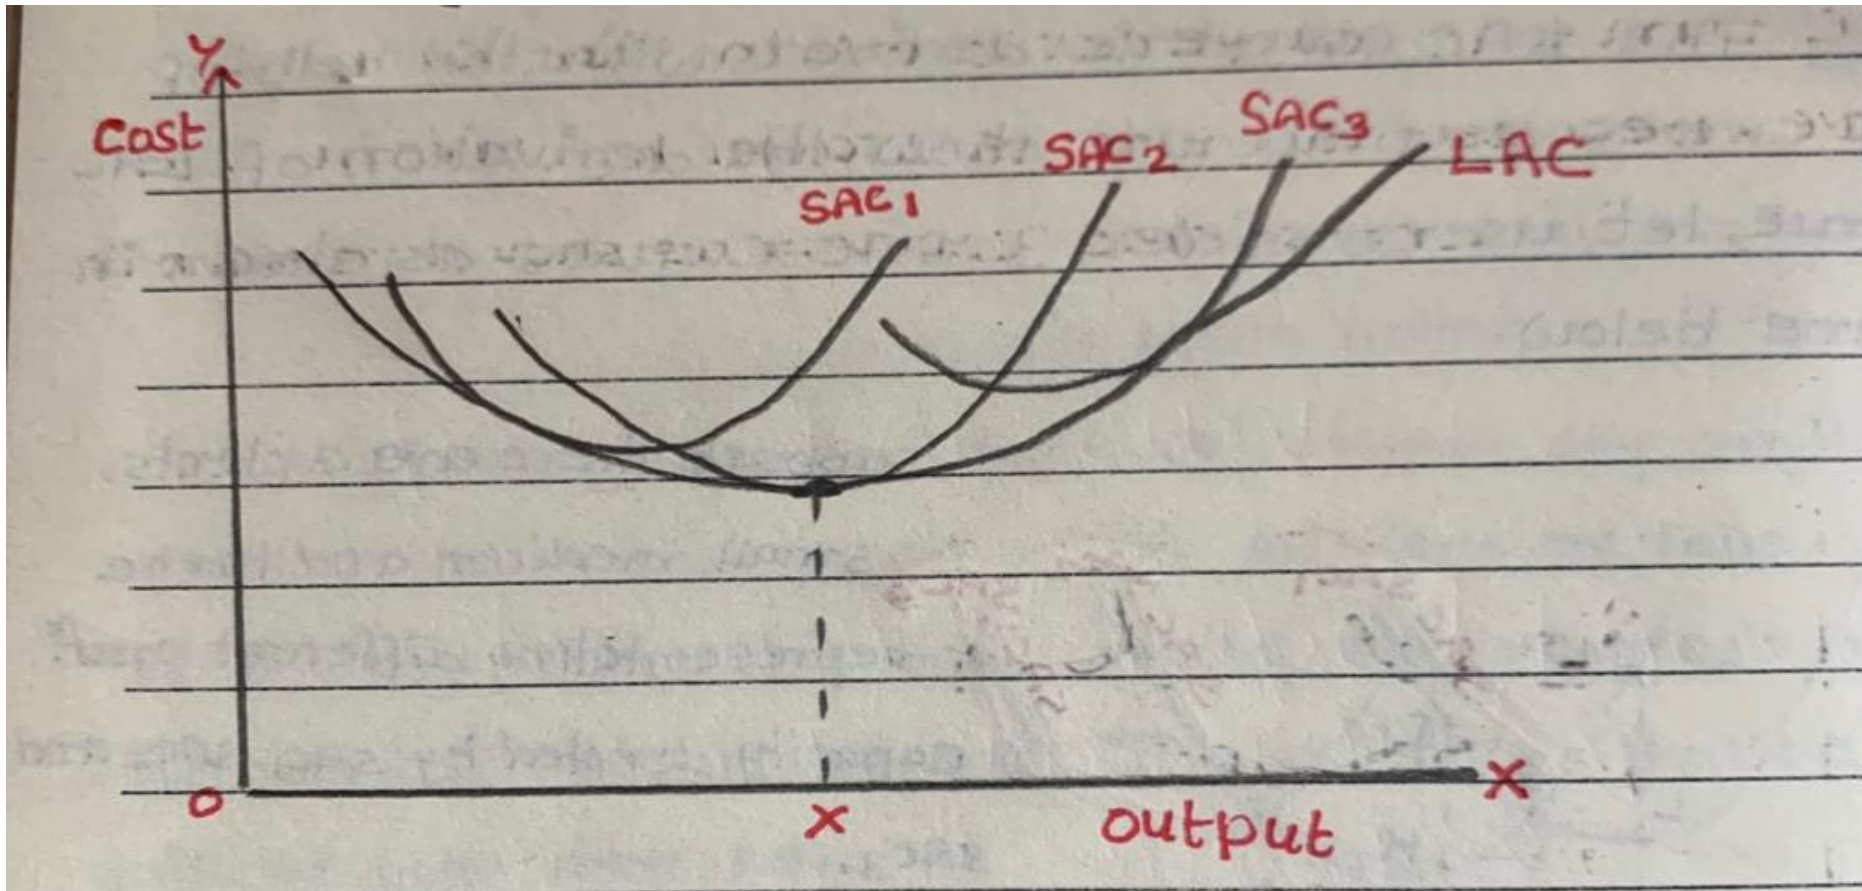 Y
Cost
SAC1
SAC2
SAC3
LAC
O
X
output
X